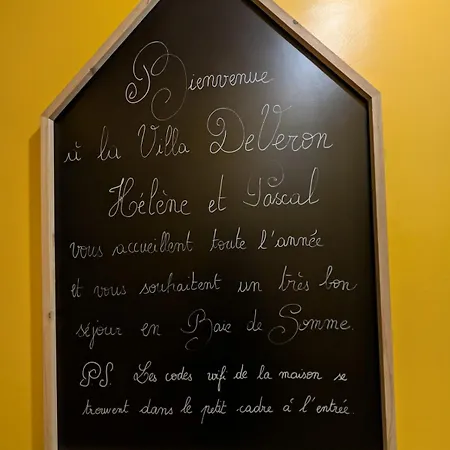 Bienvenue
à la Villa DeVeron
Hélène et Pascal
vous accueillent toute l'année
et vous souhaitent un très bon
séjour en Baie de Somme.
PS. Les codes wifi de la maison se
trouvent dans le petit cadre à l'entrée.